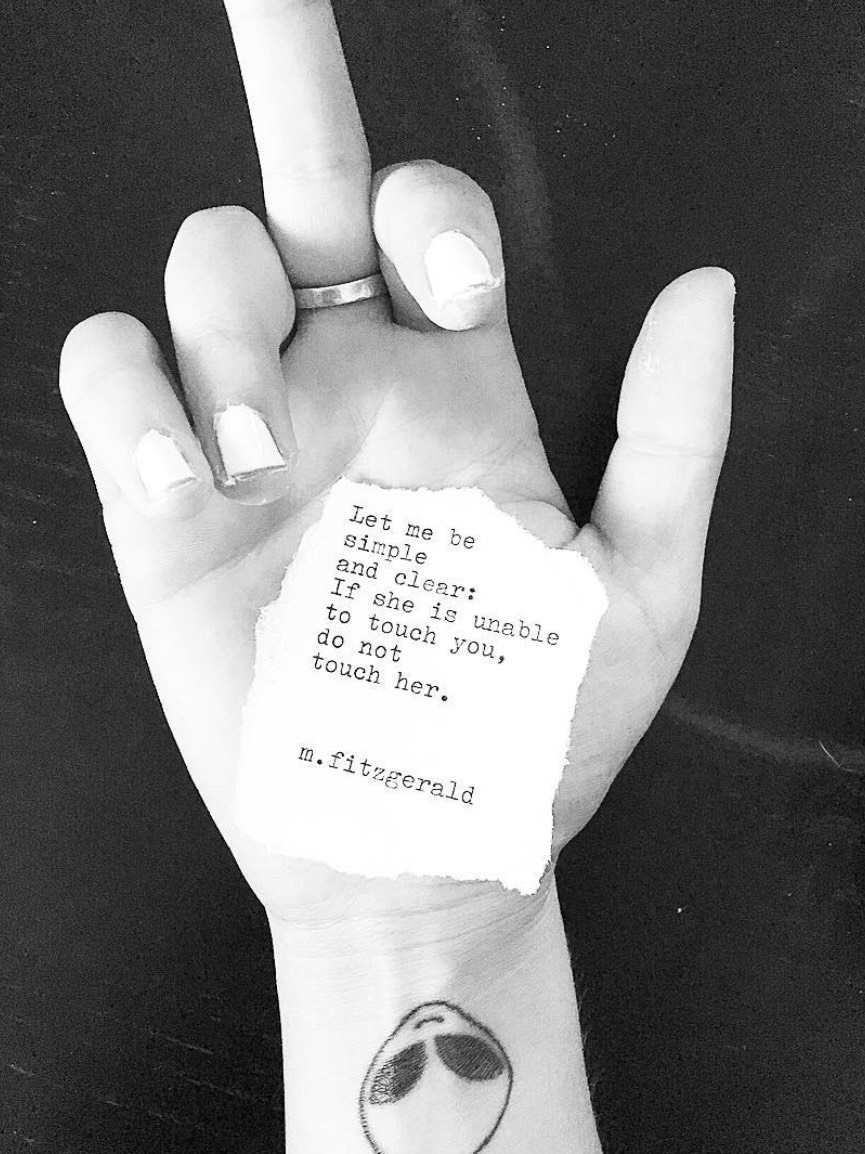 Let me be
simple
and clear:
If she is unable
to touch you,
do not
touch her.
m.fitzgerald